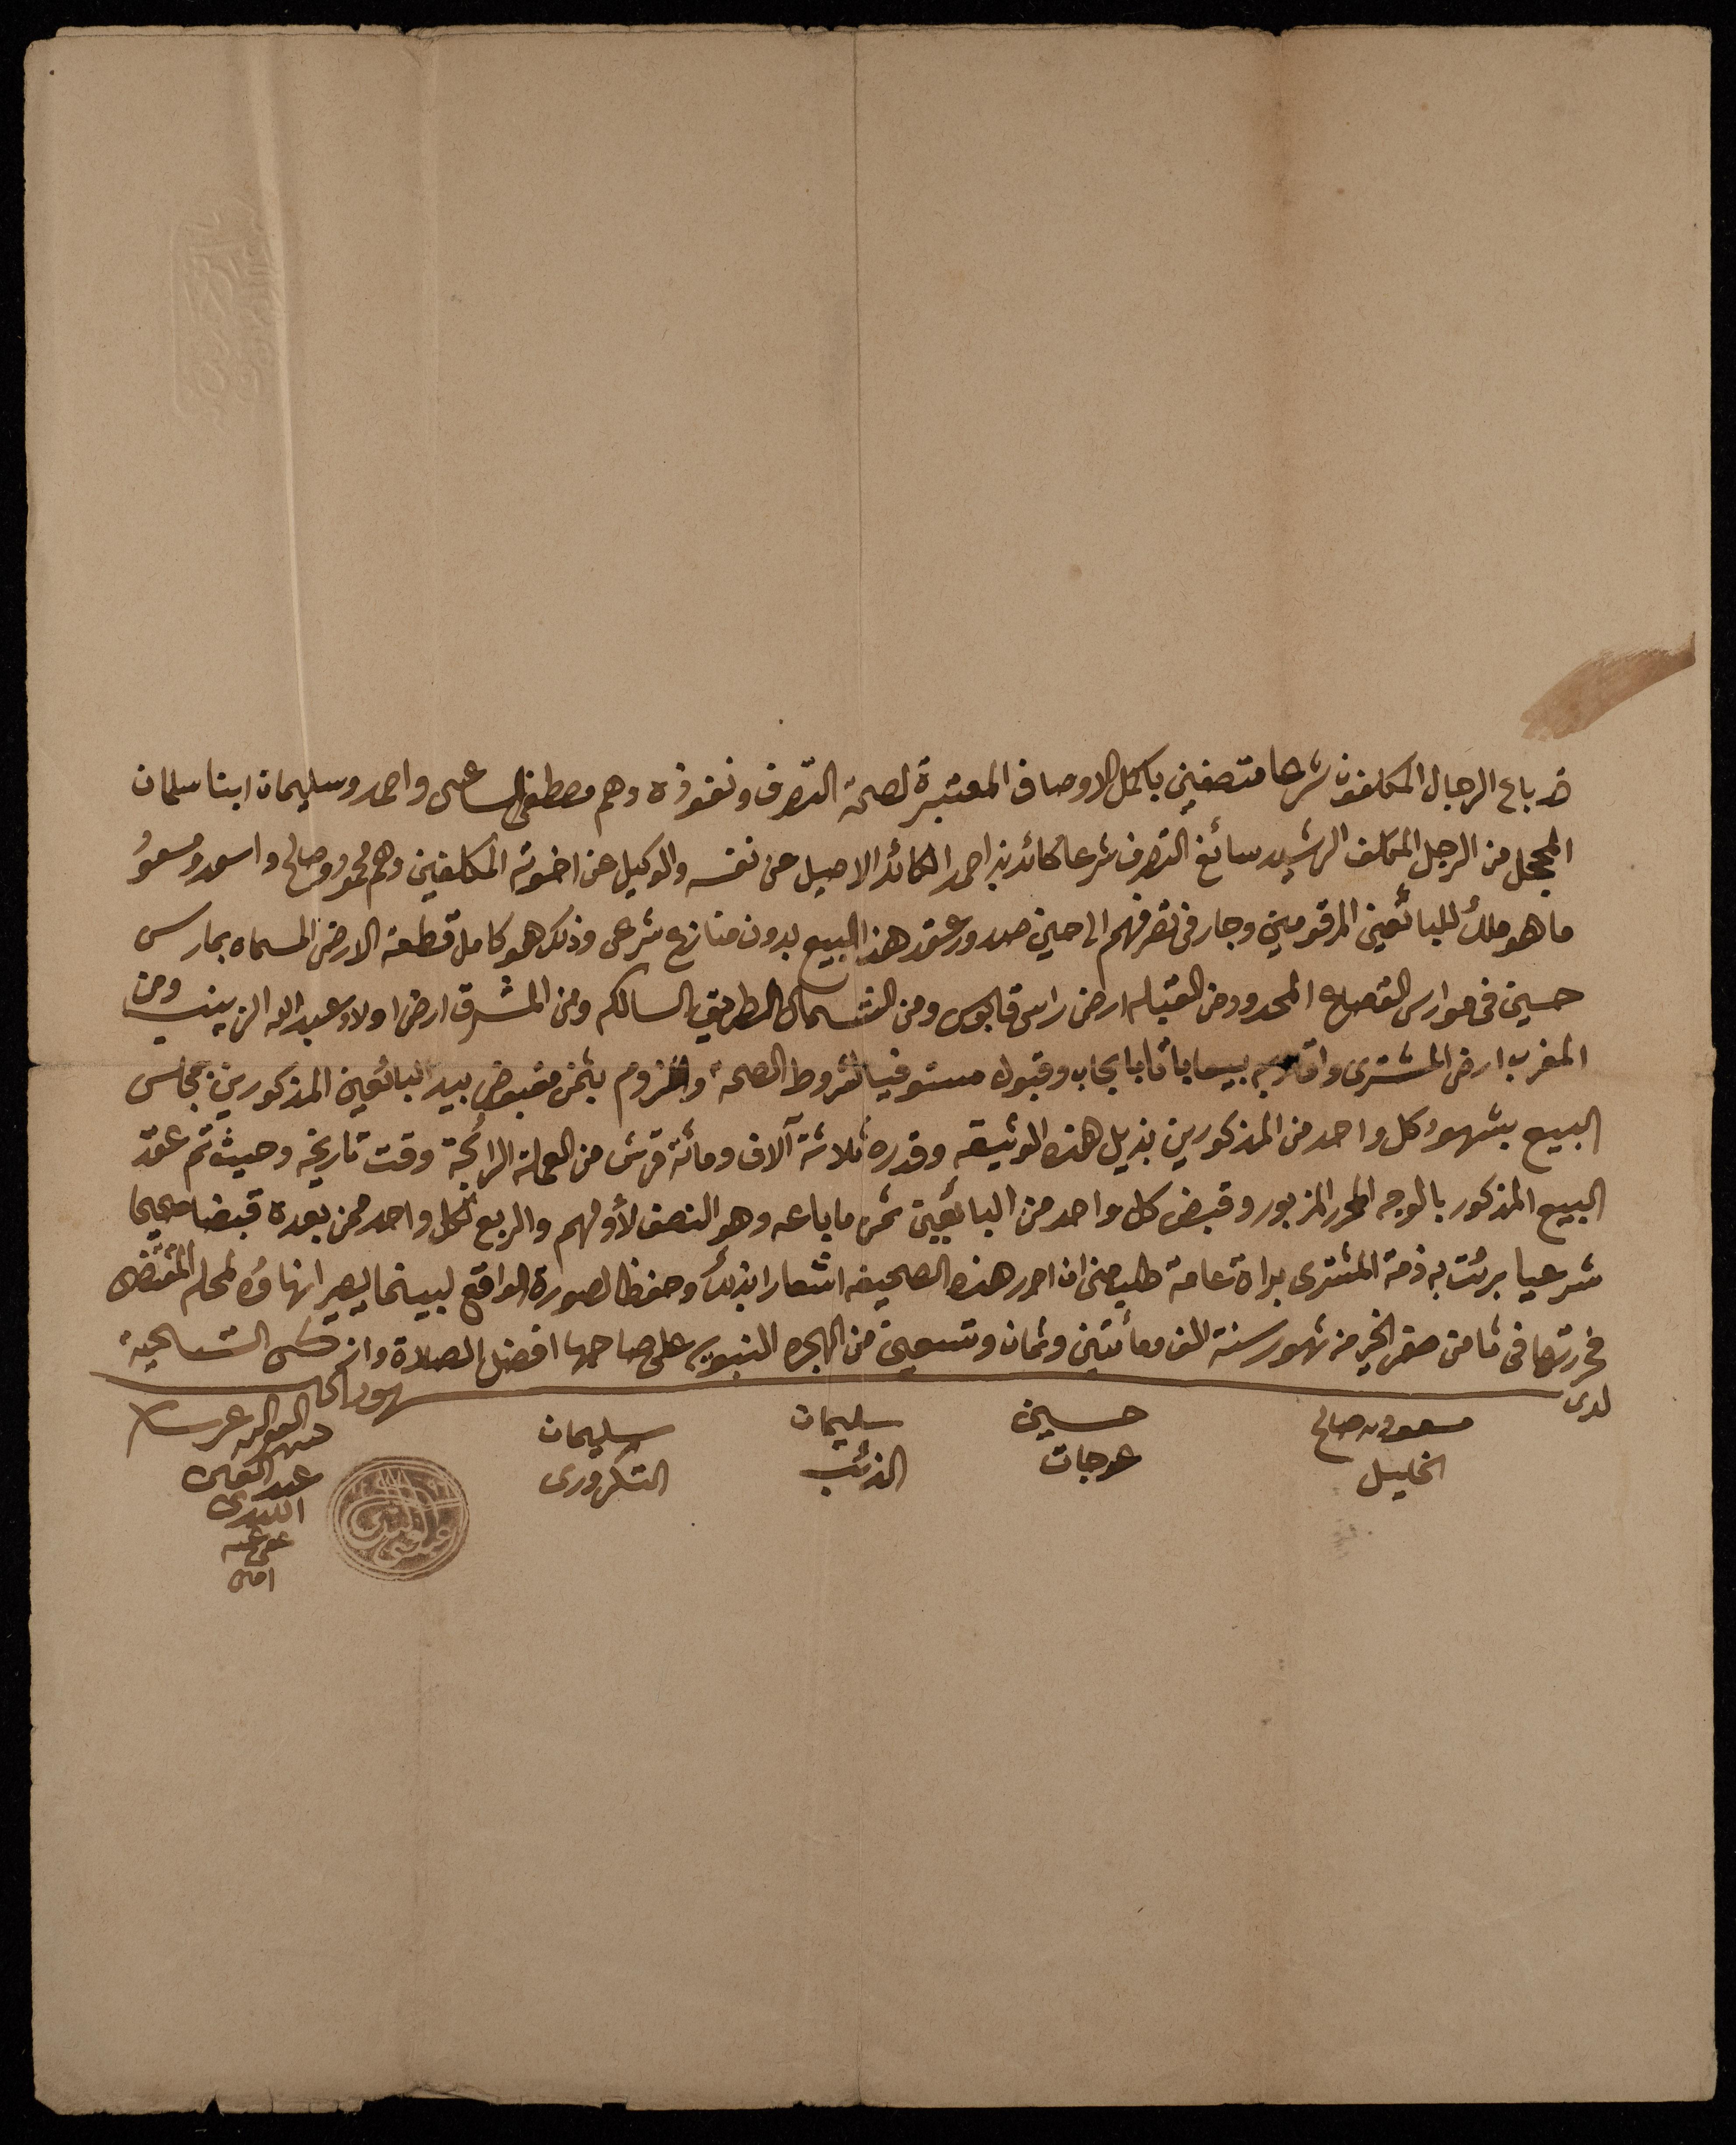 قد باع الرجال المكلفون شرعا متصفين باكمل الاوصاف المعتبرة لصحة التصرف ونفوذه وهم مصطفى الساعى واحمد وسليمان ابنا سلمان
المحجل من الرجل المكلف الرشيد سائغ التصرف شرعا كائد بن احمد الكائد الاصيل عن نفسه والوكيل عن اخوته المكلفين وهم محمود وصالح واسعد ومسعود
ما هو ملك للبائعين المرقومين وجار فى تصرفهم الى حين صدور عقد هذا البيع بدون منازع شرعى وذلك هو كامل قطعة الارض المسماه بمارس
حسين فى موارس القصاع المحدود من القبله ارض راس قابوس ومن الشمال الطريق السالكه ومن المشرق ارض اولاد عبدالله الزبيب ومن
المغرب ارض المشترى واقاربه بيعا باتا بايجاب وقبول مستوفيا لشروط الصحة واللزوم بثمن مقبوض بيد البائعين المذكورين بمجلس
البيع بشهود كل واحد من المذكورين بذيل هذه الوثيقه وقدره ثلاثة آلاف ومائة قرش من العملة الرائجة وقت تاريخه وحيث تم عقد
البيع المذكور بالوجه المحرر المزبور وقبض كل واحد من البائعين ثمن ما باعه وهو النصف لأولهم والربع لكل واحد ممن بعدة قبضا صحيحا
شرعيا برئت به ذمة المشترى براة عامة طلب منى ان احرر هذه الصحيفه اشعارا بذلك وحفظا لصورة الواقع لبينما يصير انهاؤه لمحله المقتضى
فحررتها فى ثامن صفر الخير من شهور سنة الف ومأتين وثمان وتسعين من الهجره النبويه على صاحبها افضل الصلاة وازكى التحية
لدى
شهود الحال
مسعود بن صالح
الخليل
حسين
عوجان
سليمان
الذئب
سليمان
التكرورى
عبد الغنى
اللبدى
عفى عنه
امين